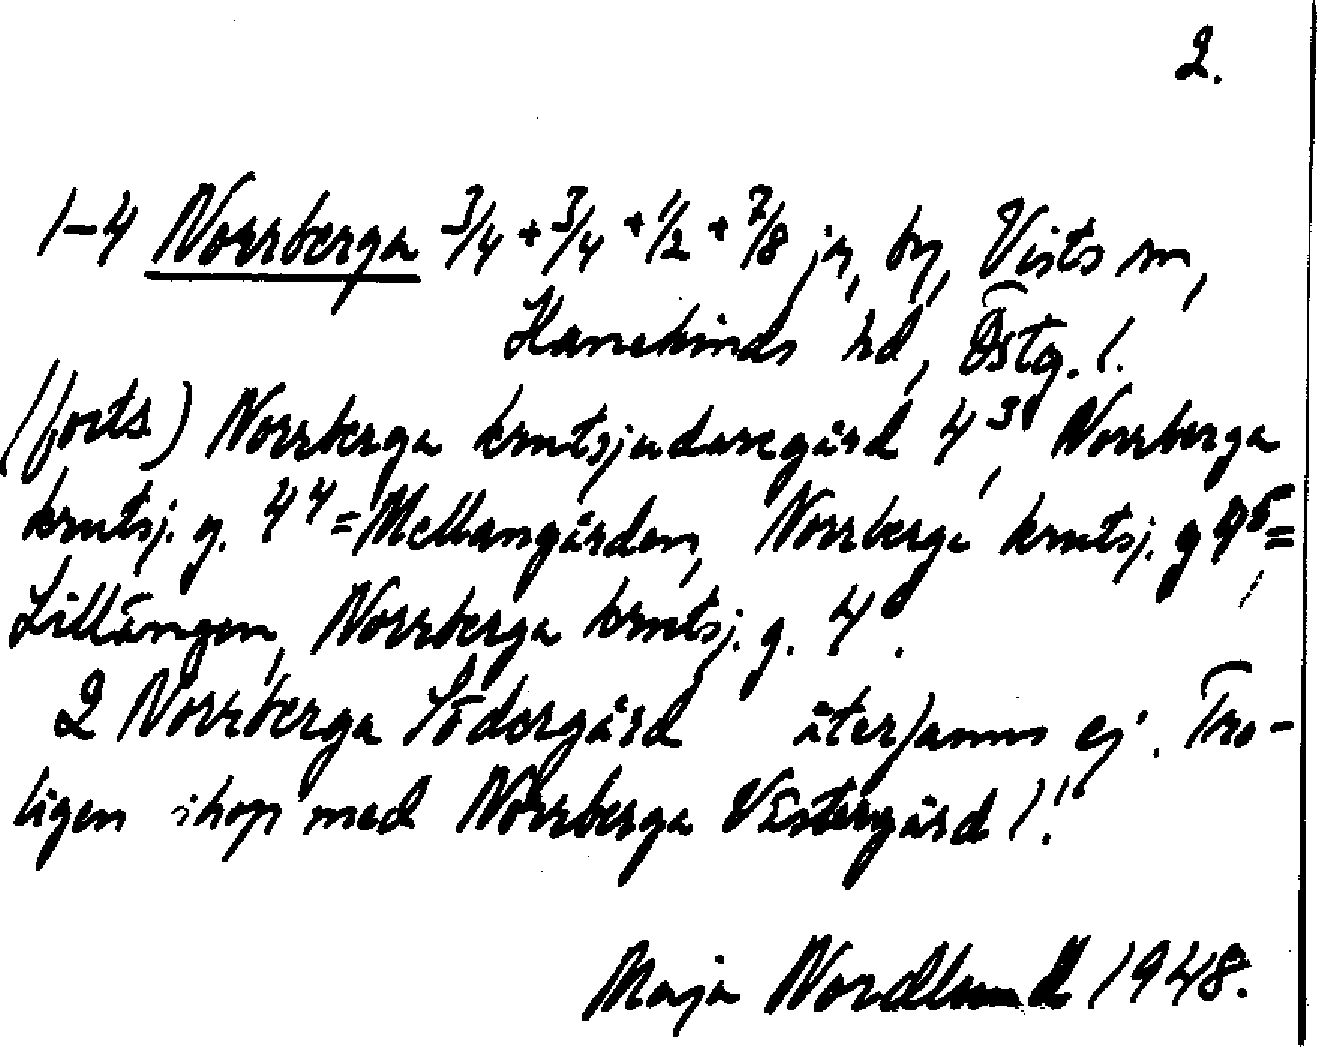 2.
1-4 Norrberga 3/4 + 3/4 + 1/2 + 7/8 jn, by, Vists sn,
Hanekinds hd, Östg. l.
(forts.) Norrberga krutsjudaregård 4³, Norrberga
krutsj. g. 4⁴ = Mellangården, Norrberga krutsj. g 4⁵ =
Lillängen, Norrberga krutsj. g. 4⁶.
2 Norrberga Södergård återfanns ej. Tro-
ligen ihop med Norrberga Västergård 1.¹
Maja Nordlund 1948.